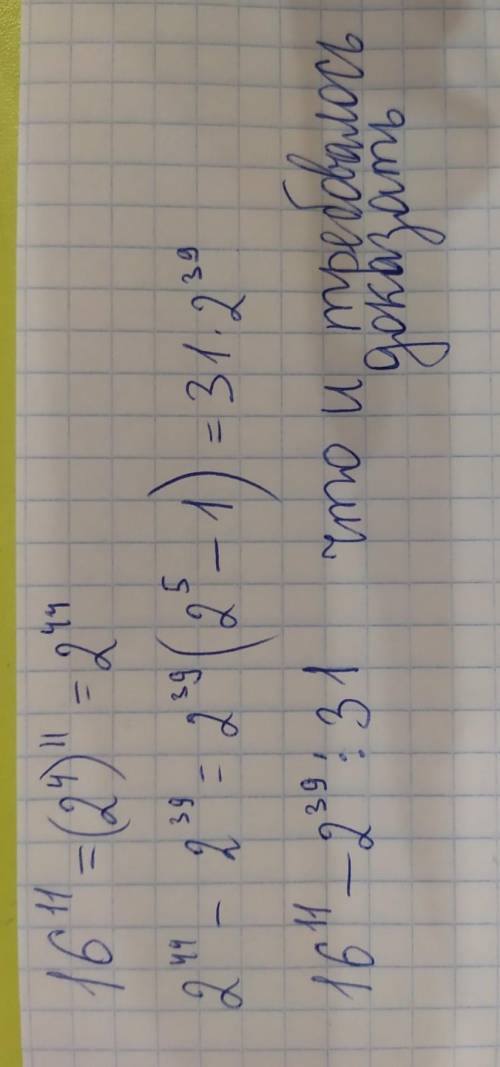 16¹¹ = (2⁴)¹¹ = 2⁴⁴
2⁴⁴ - 2³⁹ = 2³⁹(2⁵ - 1) = 31 · 2³⁹
16¹¹ - 2³⁹ ⋮ 31 что и требовалось
доказать